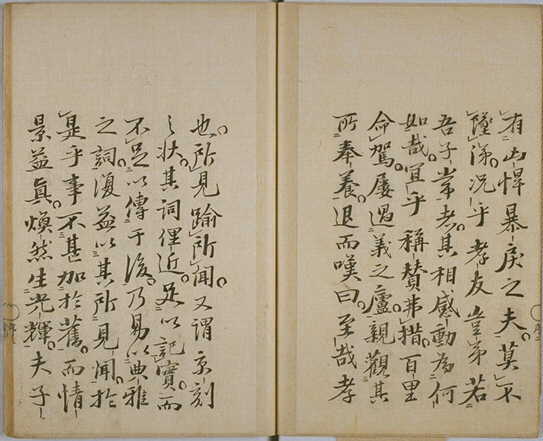 有凶悍暴戻之夫莫不
墮涕況乎孝友豈弟若
吾子常者其相感動為何
如哉宜乎稱賛弗措百里
命駕屢過義之廬親觀其
所奉養退而嘆曰至哉孝
也所見踰所聞又謂京刻
之状其詞俚近足以記實而
不足以傳于後乃易以典雅
之詞復益以其所見聞於
是乎事不甚加於舊而情
景益眞煥然生光輝夫子